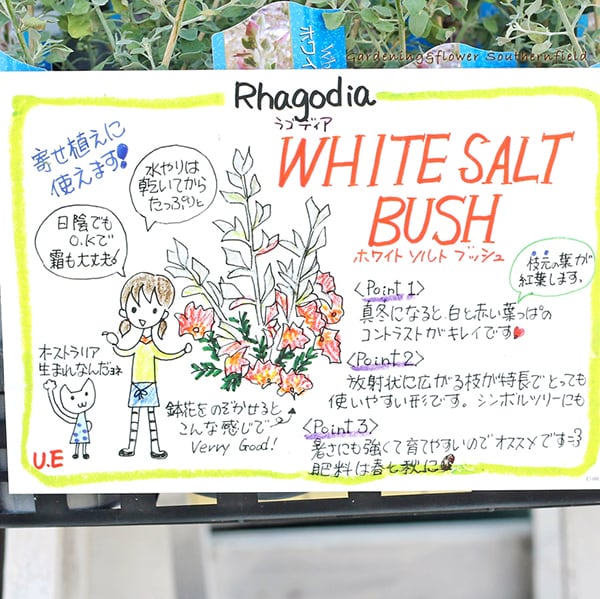 Gardening&flower Southernfield
ホワイ
Rhagodia
ラゴディア
寄せ植えに
使えます!
水やりは
乾いてから
たっぷりと
WHITE SALT
BUSH
ホワイト ソルト ブッシュ
日陰でも
O.Kで
霜も大丈夫
枝元の葉が
紅葉します。
<Point 1>
真冬になると、白と赤い葉っぱの
コントラストがキレイです
<Point 2>
放射状に広がる枝が特長でとっても
使いやすい形です。シンボルツリーにも
<Point 3>
暑さにも強くて育てやすいのでオススメです=3
肥料は春と秋に
オーストラリア
生まれなんだよね
鉢花をのぞかせると
こんな感じで
Verry Good!
U.E